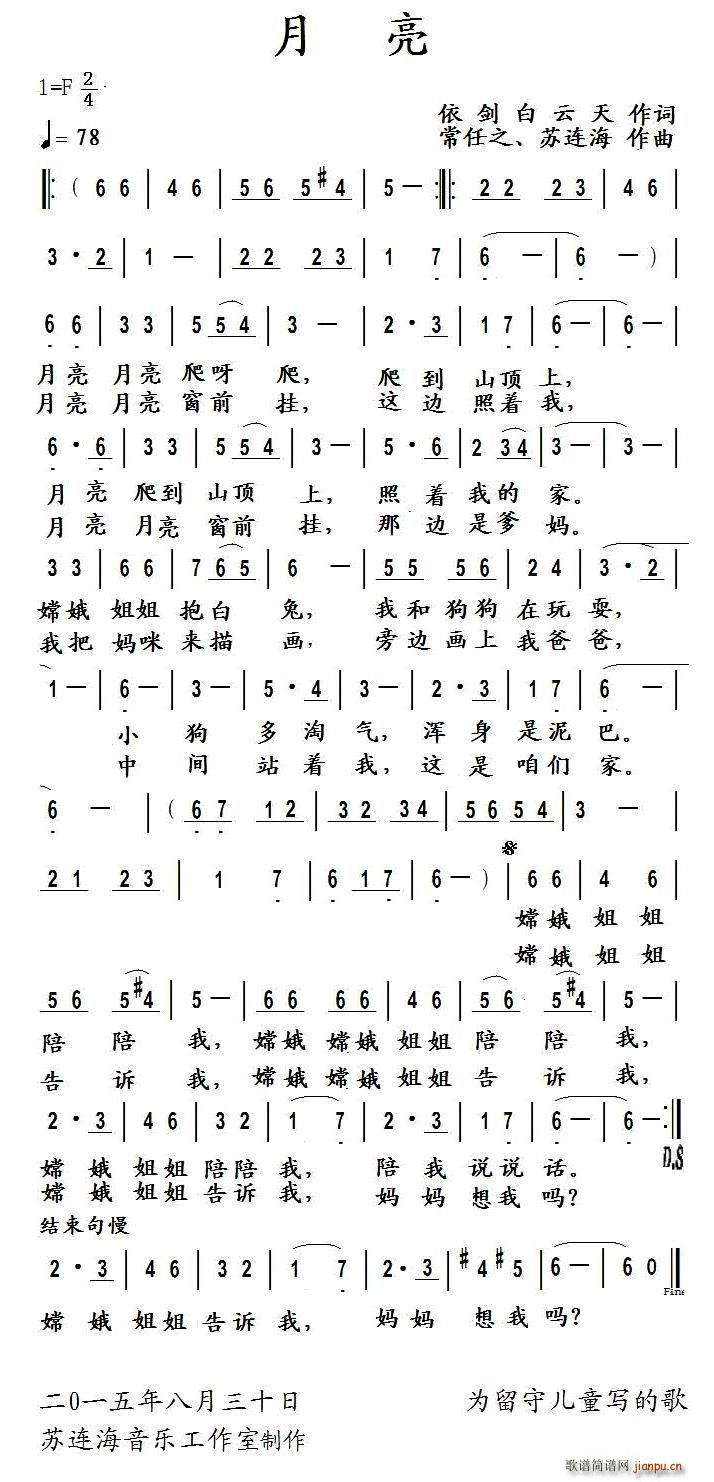 月 亮
1=F 2/4
♩= 78
依剑白云天 作词
常任之、苏连海 作曲
( 6 6 | 4 6 | 5 6 5 #4 | 5 — :‖: 2 2 2 3 | 4 6 |
3 · 2 | 1 — | 2 2 2 3 | 1 7 | 6 — | 6 — ) |
6 6 | 3 3 | 5 5 4 | 3 — | 2 · 3 | 1 7 | 6 — | 6 — |
月亮 月亮 爬呀 爬, 爬 到 山顶 上,
月亮 月亮 窗前 挂, 这 边 照着 我,
6 · 6 | 3 3 | 5 5 4 | 3 — | 5 · 6 | 2 3 4 | 3 — | 3 — |
月 亮 爬到 山顶 上, 照 着 我的 家。
月 亮 月亮 窗前 挂, 那 边 是爹 妈。
3 3 | 6 6 | 7 6 5 | 6 — | 5 5 5 6 | 2 4 | 3 · 2 |
嫦娥 姐姐 抱白 兔, 我和狗狗 在玩 耍,
我把 妈咪 来描 画, 旁边画上 我爸 爸,
1 — | 6 — | 3 — | 5 · 4 | 3 — | 2 · 3 | 1 7 | 6 — |
小 狗 多 淘 气, 浑 身 是泥 巴。
中 间 站 着 我, 这 是 咱们 家。
6 — | ( 6 7 1 2 | 3 2 3 4 | 5 6 5 4 | 3 — |
2 1 2 3 | 1 7 | 6 1 7 | 6 — ) | 6 6 | 4 6 |
嫦娥 姐姐
嫦娥 姐姐
5 6 5 #4 | 5 — | 6 6 6 6 | 4 6 | 5 6 5 #4 | 5 — |
陪 陪 我, 嫦娥 嫦娥 姐姐 陪 陪 我,
告 诉 我, 嫦娥 嫦娥 姐姐 告 诉 我,
2 · 3 | 4 6 | 3 2 | 1 7 | 2 · 3 | 1 7 | 6 — | 6 — :‖
D.S
嫦 娥 姐姐 陪陪 我, 陪 我 说说 话。
嫦 娥 姐姐 告诉 我, 妈 妈 想我 吗?
结束句慢
2 · 3 | 4 6 | 3 2 | 1 7 | 2 · 3 | #4 #5 | 6 — | 6 0 ‖
Fine
嫦 娥 姐姐 告诉 我, 妈 妈 想我 吗?
二0一五年八月三十日 为留守儿童写的歌
苏连海音乐工作室制作
歌谱简谱网
jianpu.cn